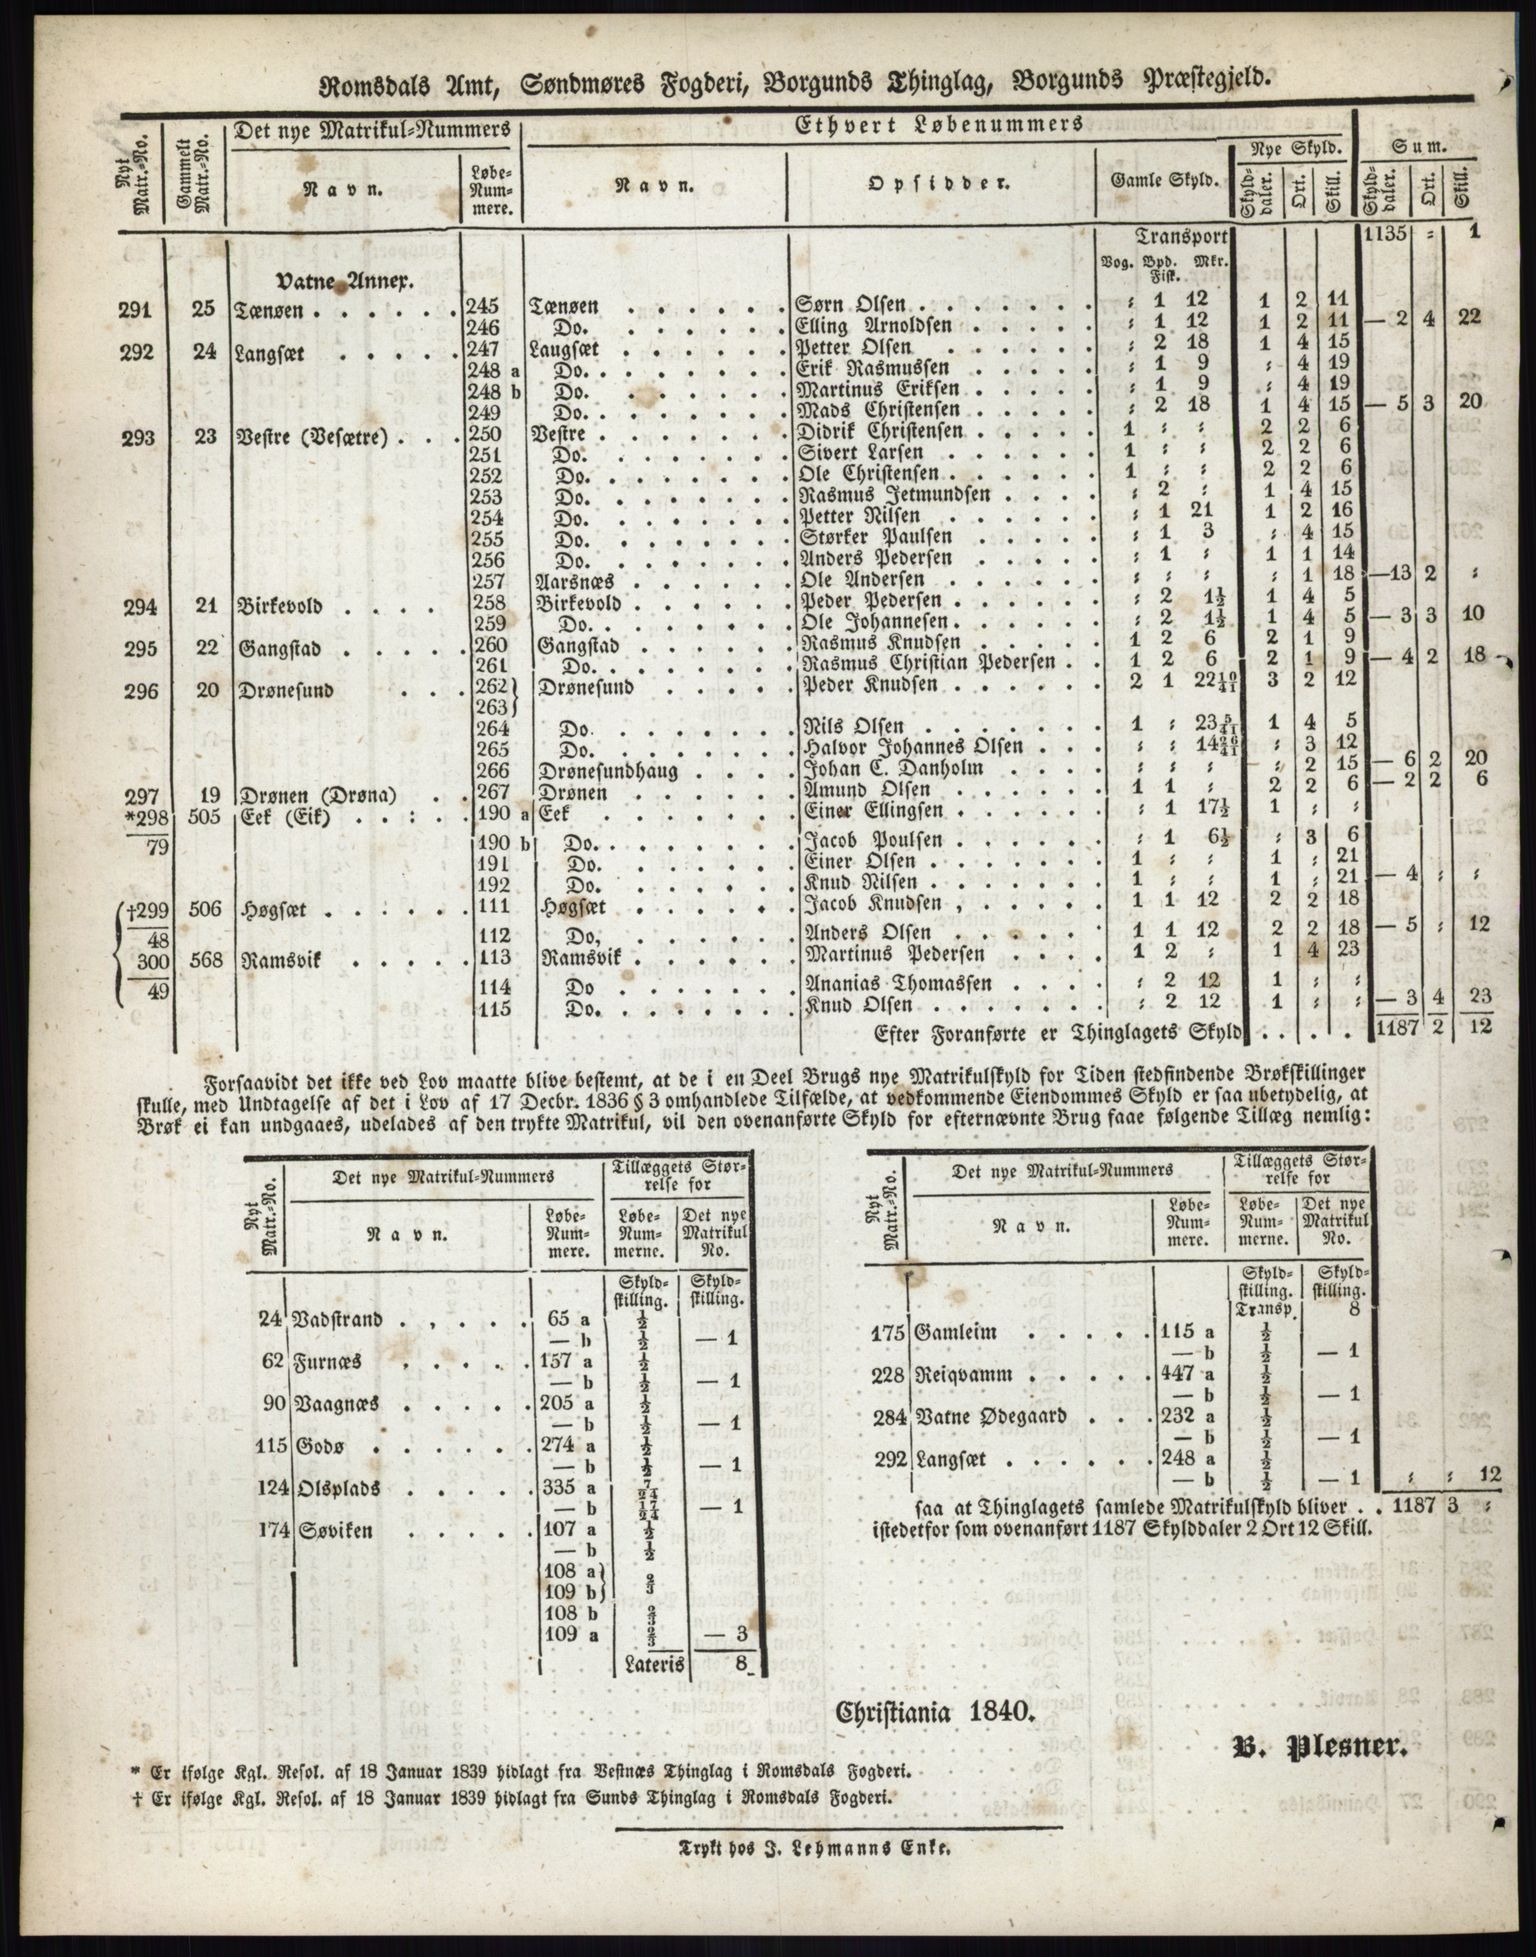 Romsdals Amt, Søndmøres Fogderi, Borgunds Thinglag, Borgunds Præstegjeld.
Nyt Matr.-No. Gammelt Matr.-No. Det nye Matrikul-Nummers Ethvert Løbenummers
Navn. Løbe-Num-mere. Navn. Opsidder. Gamle Skyld. Nye Skyld. Sum.
Skyld-daler. Ort. Skill. Skyld-daler. Ort. Skill.
Transport 1135 : 1
Vog. Bpd. Mkr.
Fisk.
Vatne Annex.
291 25 Tænøen . . . . . . 245 Tænøen . . . . . . Sørn Olsen . . . . . . . : 1 12 1 2 11
246 Do. . . . . . . Elling Arnoldsen . . . . . : 1 12 1 2 11 — 2 4 22
292 24 Langsæt . . . . . 247 Laugsæt . . . . . . Petter Olsen . . . . . . : 2 18 1 4 15
248 a Do. . . . . . . . Erik Rasmussen . . . . . : 1 9 : 4 19
248 b Do. . . . . . . Martinus Eriksen . . . . . : 1 9 : 4 19
249 Do. . . . . . . . Mads Christensen . . . . . : 2 18 1 4 15 — 5 3 20
293 23 Vestre (Vesætre) . . . 250 Vestre . . . . . . . Didrik Christensen . . . . . 1 : : 2 2 6
251 Do. . . . . . . Sivert Larsen . . . . . . 1 : : 2 2 6
252 Do. . . . . . . . Ole Christensen . . . . . . 1 : : 2 2 6
253 Do. . . . . . . . Rasmus Jetmundsen . . . . : 2 : 1 4 15
254 Do. . . . . . . . Petter Nilsen . . . . . . : 1 21 1 2 16
255 Do. . . . . . . . Størker Paulsen . . . . . : 1 3 : 4 15
256 Do. . . . . . . . Anders Pedersen . . . . . : 1 : 1 1 14
257 Aarsnæs . . . . . . Ole Andersen . . . . . . : : : : 1 18 —13 2 :
294 21 Birkevold . . . . 258 Birkevold . . . . . . Peder Pedersen . . . . . . : 2 1½ 1 4 5
259 Do. . . . . . . . Ole Johannesen . . . . . . : 2 1½ 1 4 5 — 3 3 10
295 22 Gangstad . . . . . 260 Gangstad . . . . . . Rasmus Knudsen . . . . . 1 2 6 2 1 9
261 Do. . . . . . . . Rasmus Christian Pedersen . . 1 2 6 2 1 9 — 4 2 18
296 20 Drønesund . . . 262} Drønesund . . . . . Peder Knudsen . . . . . . 2 1 22 10/41 3 2 12
263}
264 Do. . . . . . . . Nils Olsen . . . . . . . 1 : 23 5/41 1 4 5
265 Do. . . . . . . . Halvor Johannes Olsen . . . : : 14 26/41 : 3 12
266 Drønesundhaug . . . . Johan C. Danholm . . . . : : : : 2 15 — 6 2 20
297 19 Drønen (Drøna) . . 267 Drønen . . . . . . Amund Olsen . . . . . . 1 1 : 2 2 6 — 2 2 6
*298 505 Eek (Eik) . . : . . 190 a Eek . . . . . . . Einer Ellingsen . . . . . . : 1 17½ 1 : :
79 190 b Do. . . . . . . . Jacob Poulsen . . . . . . : 1 6½ : 3 6
191 Do. . . . . . . . Einer Olsen . . . . . . . 1 : : 1 : 21
192 Do. . . . . . . . Knud Nilsen . . . . . . . 1 : : 1 : 21 — 4 : :
†299 506 Høgsæt . . . . . . 111 Høgsæt . . . . . . Jacob Knudsen , . . . . . 1 1 12 2 2 18
48 112 Do, . . . . . . . Anders Olsen . . . . . . 1 1 12 2 2 18 — 5 : 12
300 568 Ramsvik . . . . . 113 Ramsvik . . . . . . Martinus Pedersen . . . . 1 2 : 1 4 23
49 114 Do . . . . . . . Ananias Thomassen . . . . : 2 12 1 : :
115 Do. . . . . . . . Knud Olsen . . . . . . . : 2 12 1 : : — 3 4 23
Efter Foranførte er Thinglagets Skyld . . . . 1187 2 12
Forsaavidt det ikke ved Lov maatte blive bestemt, at de i en Deel Brugs nye Matrikulskyld for Tiden stedfindende Brøkskillinger
skulle, med Undtagelse af det i Lov af 17 Decbr. 1836 § 3 omhandlede Tilfælde, at vedkommende Eiendommes Skyld er saa ubetydelig, at
Brøk ei kan undgaaes, udelades af den trykte Matrikul, vil den ovenanførte Skyld for efternævnte Brug faae følgende Tillæg nemlig:
Nyt Matr.-No. Det nye Matrikul-Nummers Tillæggets Størrelse for
Navn. Løbe-Num-mere. Løbe-Num-merne. Det nye Matrikul No.
Skyld-skilling. Skyld-skilling.
24 Vadstrand . , . . . 65 a ½
— b ½ — 1
62 Furnæs . . . . . 157 a ½
— b ½ — 1
90 Vaagnæs . . . . . 205 a ½
— b ½ — 1
115 Godø . . . . . . 274 a ½
— b ½ — 1
124 Olsplads . . . . . 335 a 7/24
— b 17/24 — 1
174 Søviken . . . . . 107 a ½
— b ½
108 a}
109 b} ⅔
108 b ⅔
109 a ⅔ — 3
Lateris 8
Nyt Matr.-No. Det nye Matrikul-Nummers Tillæggets Størrelse for
Navn. Løbe-Num-mere. Løbe-Num-merne. Det nye Matrikul No.
Skyld-skilling. Skyld-skilling.
Transp. 8
175 Gamleim . . . . . 115 a ½
— b ½ — 1
228 Reiqvamm . . . . . 447 a ½
— b ½ — 1
284 Vatne Ødegaard . . . 232 a ½
— b ½ — 1
292 Langsæt . . . . . . 248 a ½
— b ½ — 1 : : 12
saa at Thinglagets samlede Matrikulskyld bliver . . 1187 3 :
istedetfor som ovenanført 1187 Skylddaler 2 Ort 12 Skill.
Christiania 1840.
B. Plesner.
* Er ifølge Kgl. Resol. af 18 Januar 1839 hidlagt fra Vestnæs Thinglag i Romsdals Fogderi.
† Er ifølge Kgl. Resol. af 18 Januar 1839 hidlagt fra Sunds Thinglag i Romsdals Fogderi.
Trykt hos J. Lehmanns Enke.